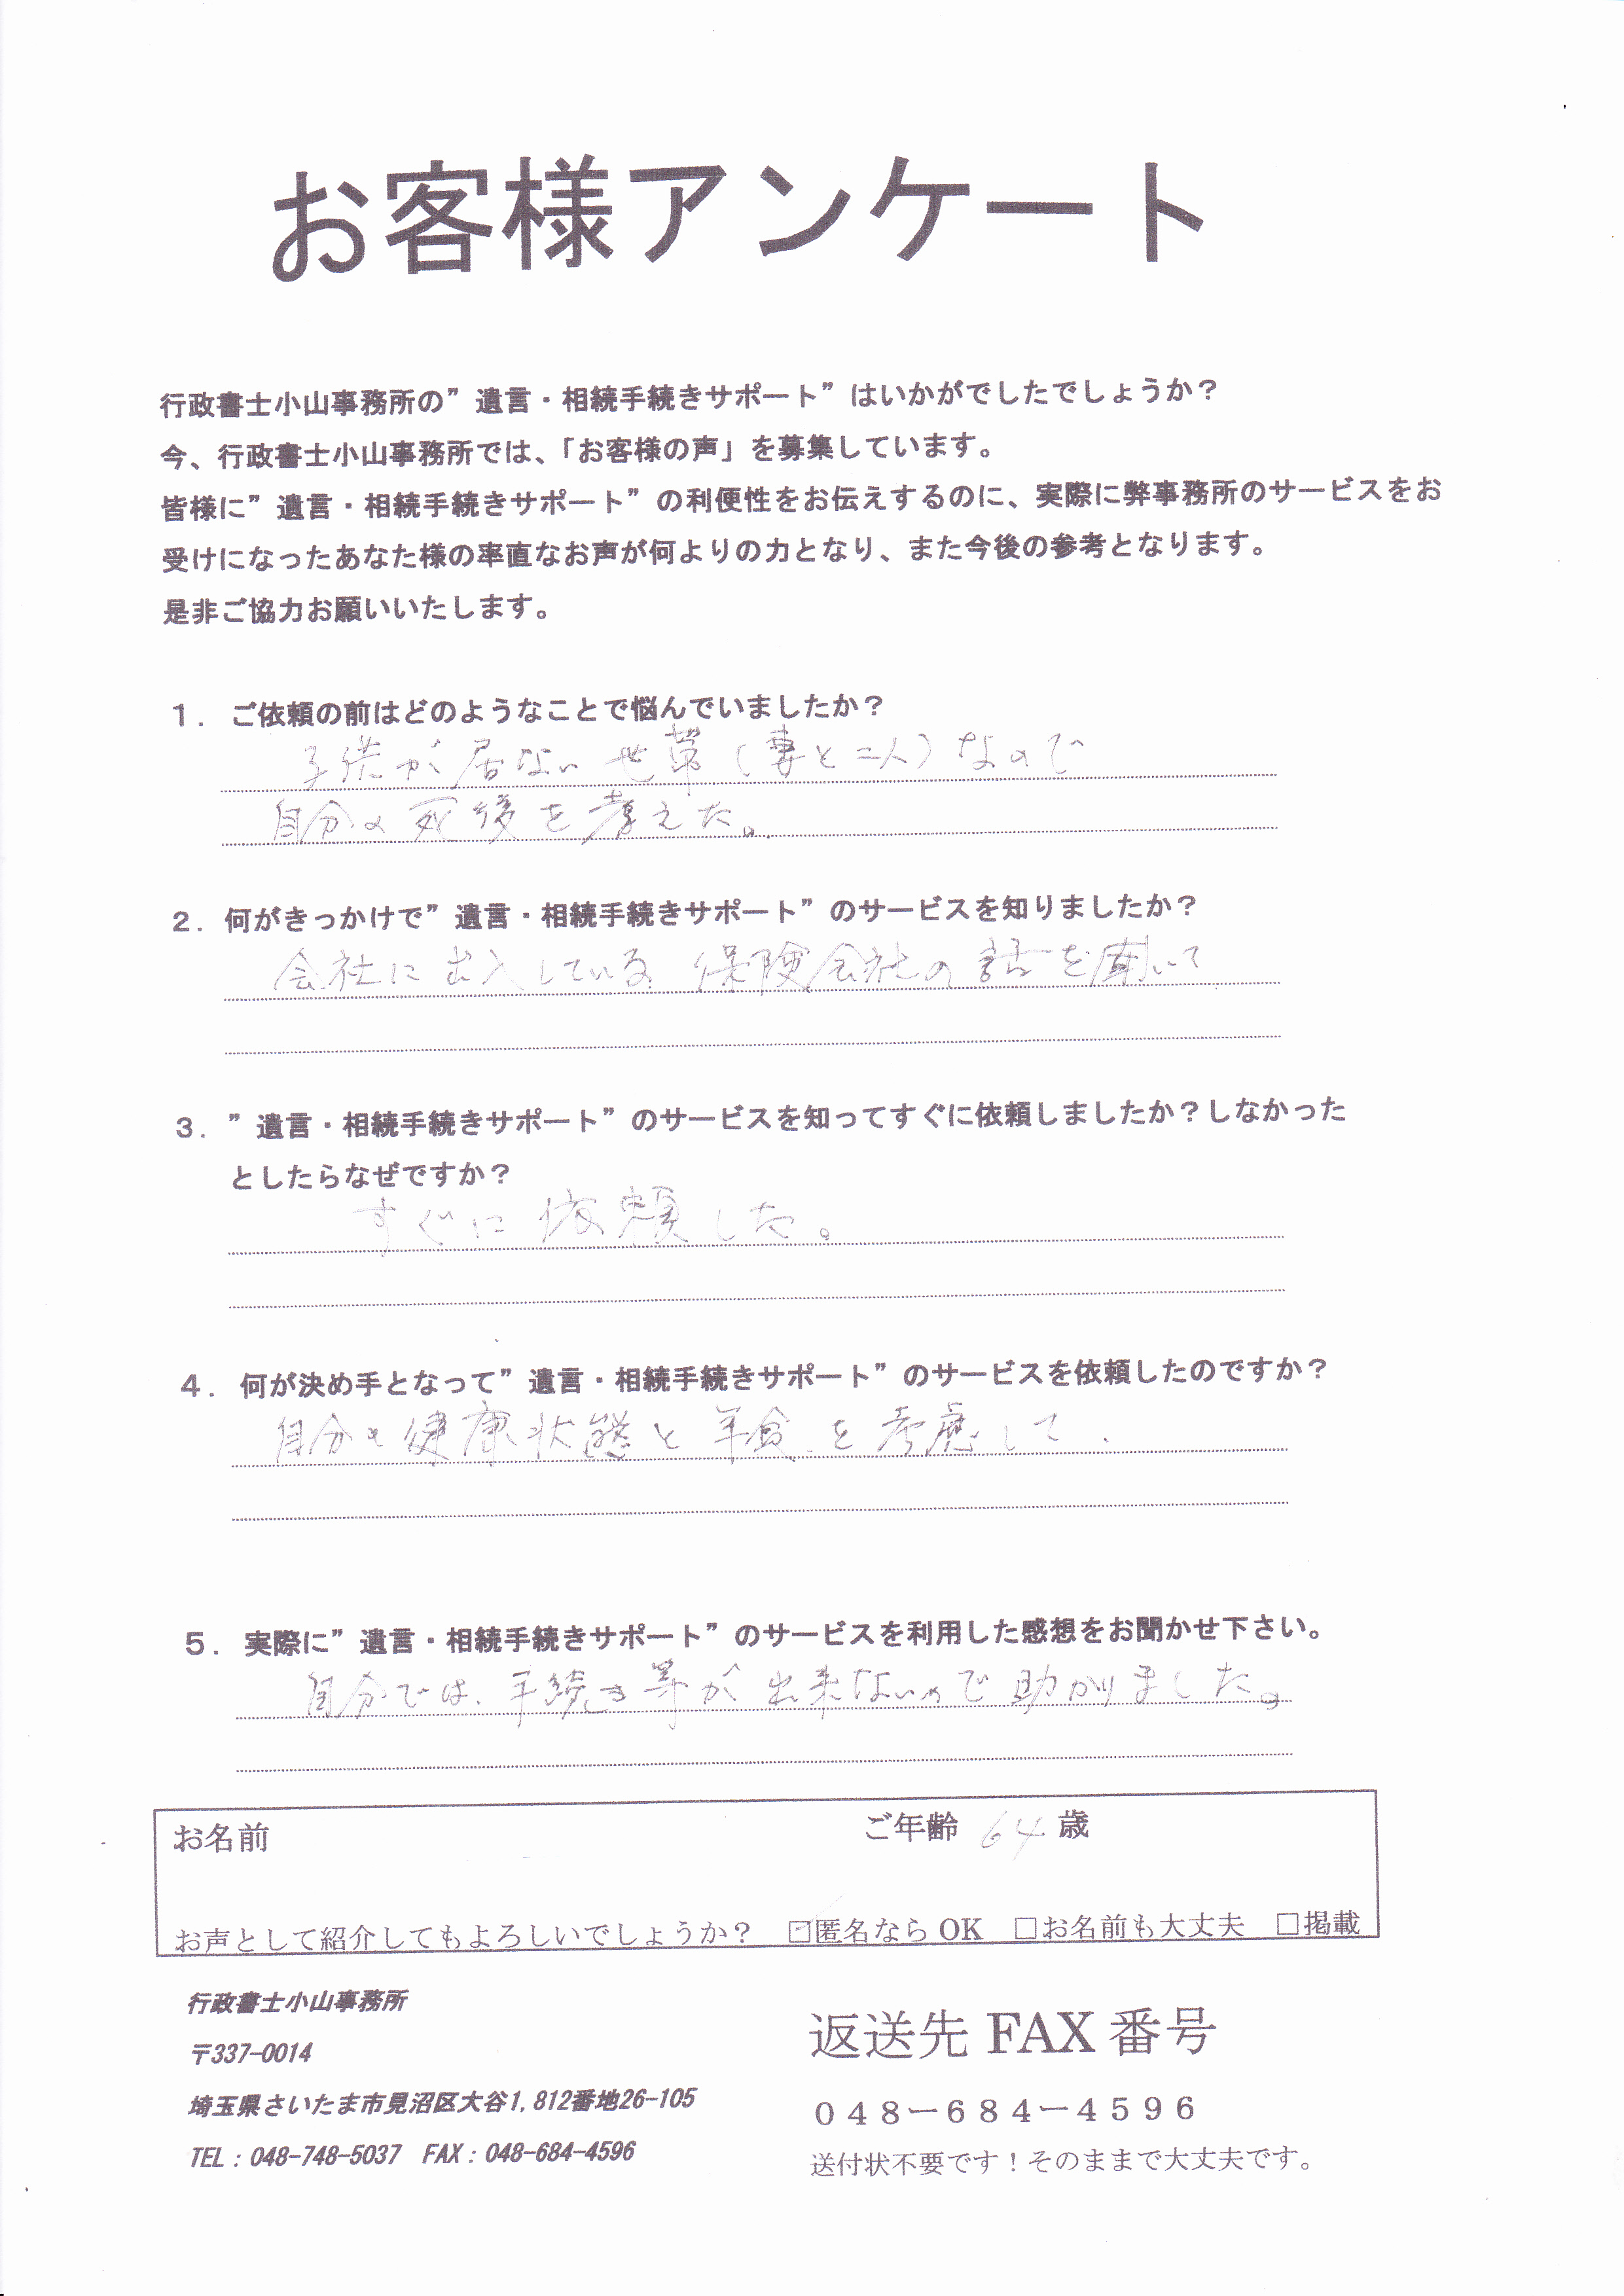 お客様アンケート
行政書士小山事務所の”遺言・相続手続きサポート”はいかがでしたでしょうか？
今、行政書士小山事務所では、「お客様の声」を募集しています。
皆様に”遺言・相続手続きサポート”の利便性をお伝えするのに、実際に弊事務所のサービスをお
受けになったあなた様の率直なお声が何よりの力となり、また今後の参考となります。
是非ご協力お願いいたします。
１．ご依頼の前はどのようなことで悩んでいましたか？
子供が居ない世帯（妻と二人）なので
自分の死後を考えた。
２．何がきっかけで”遺言・相続手続きサポート”のサービスを知りましたか？
会社に出入している保険会社の話を聞いて
３．”遺言・相続手続きサポート”のサービスを知ってすぐに依頼しましたか？しなかった
としたらなぜですか？
すぐに依頼した。
４．何が決め手となって”遺言・相続手続きサポート”のサービスを依頼したのですか？
自分の健康状態と年令を考慮して．
５．実際に”遺言・相続手続きサポート”のサービスを利用した感想をお聞かせ下さい。
自分では、手続き等が出来ないので助かりました。
お名前 ご年齢 64 歳
お声として紹介してもよろしいでしょうか？ ☑匿名なら OK □お名前も大丈夫 □掲載
行政書士小山事務所
〒337-0014
埼玉県さいたま市見沼区大谷1,812番地26-105
TEL：048-748-5037 FAX：048-684-4596
返送先 FAX 番号
０４８－６８４－４５９６
送付状不要です！そのままで大丈夫です。